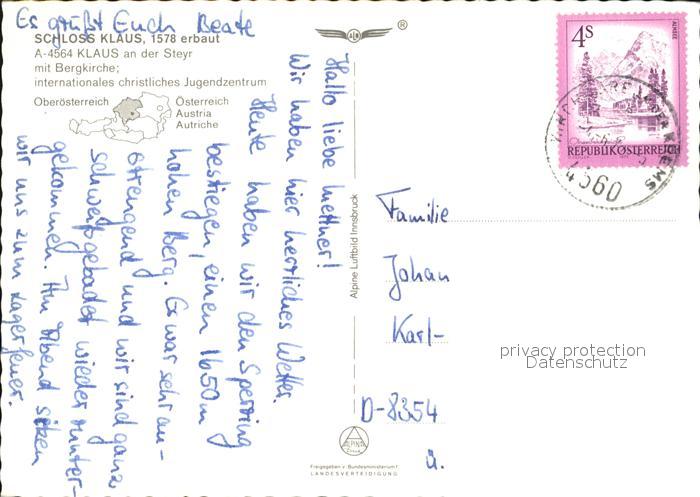 Es grüßt Euch Beate
SCHLOSS KLAUS, 1578 erbaut
A-4564 KLAUS an der Steyr
mit Bergkirche;
internationales christliches Jugendzentrum
Oberösterreich
Österreich
Austria
Autriche
Hallo liebe
Wir haben hier herrliches Wetter.
Heute haben wir den Sperring
bestiegen, einen 1650m
hohen Berg. Es war sehr an-
strengend und wir sind ganz
schweißgebadet wieder runter-
gekommen. Am Abend sitzen
wir uns zum Lagerfeuer.
Alpine Luftbild Innsbruck
ALPINE
Freigegeben v. Bundesministerium f.
LANDESVERTEIDIGUNG
®
4S
ALMSEE
REPUBLIK ÖSTERREICH
KREMS
4560
Familie
Johan
Karl-
D-8354
privacy protection
Datenschutz